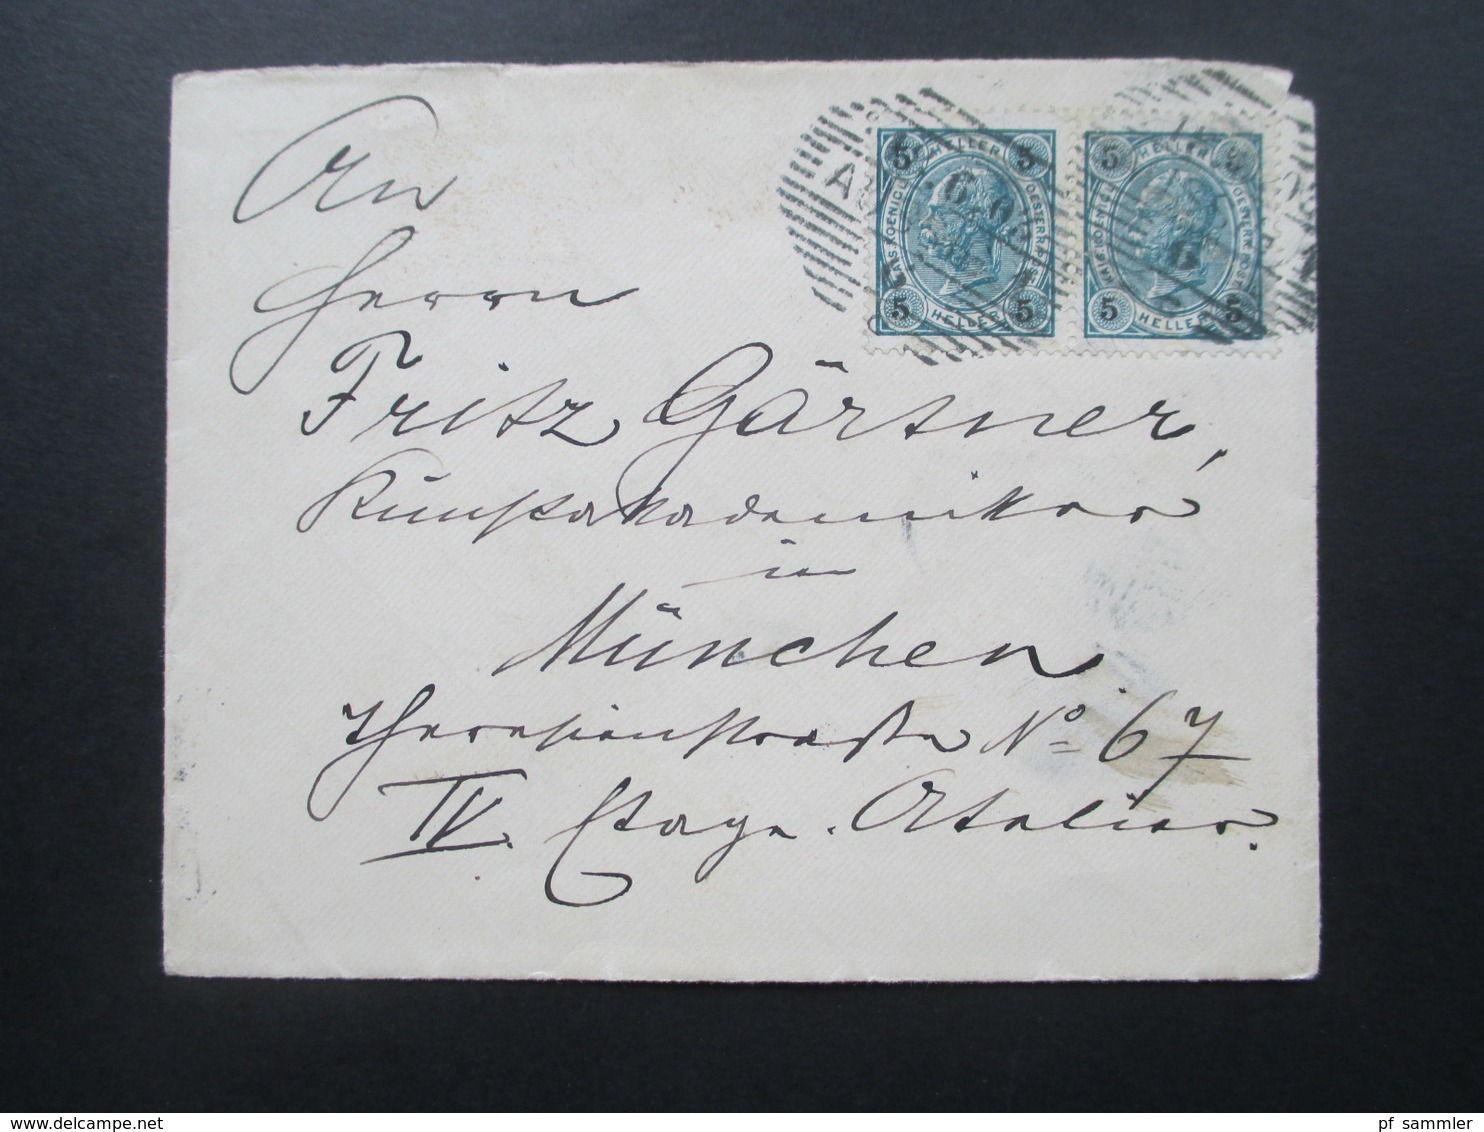 An
Herrn
Fritz Gärtner,
Kunstakademiker
in
München
Theresienstraße No 67
IV. Etage. Atelier.
5 HELLER 5
KAIS. KOENIGL. OESTERR. POST
5 HELLER 5
5 HELLER 5
KAIS. KOENIGL. OESTERR. POST
5 HELLER 5
pf_sammler
www.delcampe.net